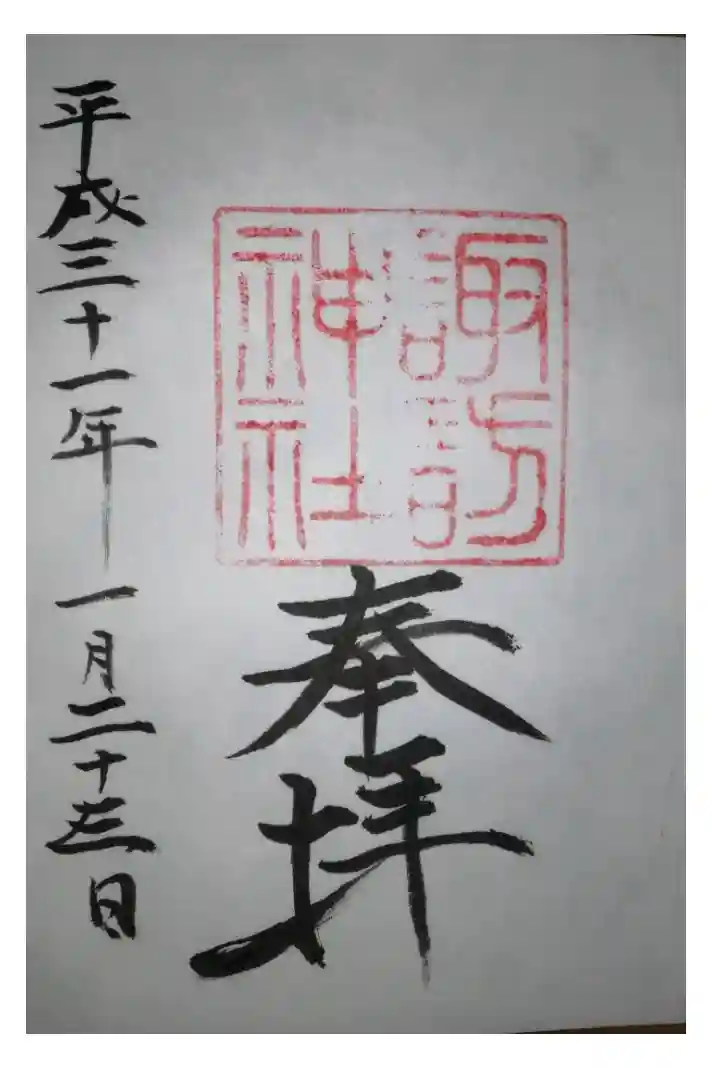 諏訪
神社
奉拝
平成三十一年一月二十三日